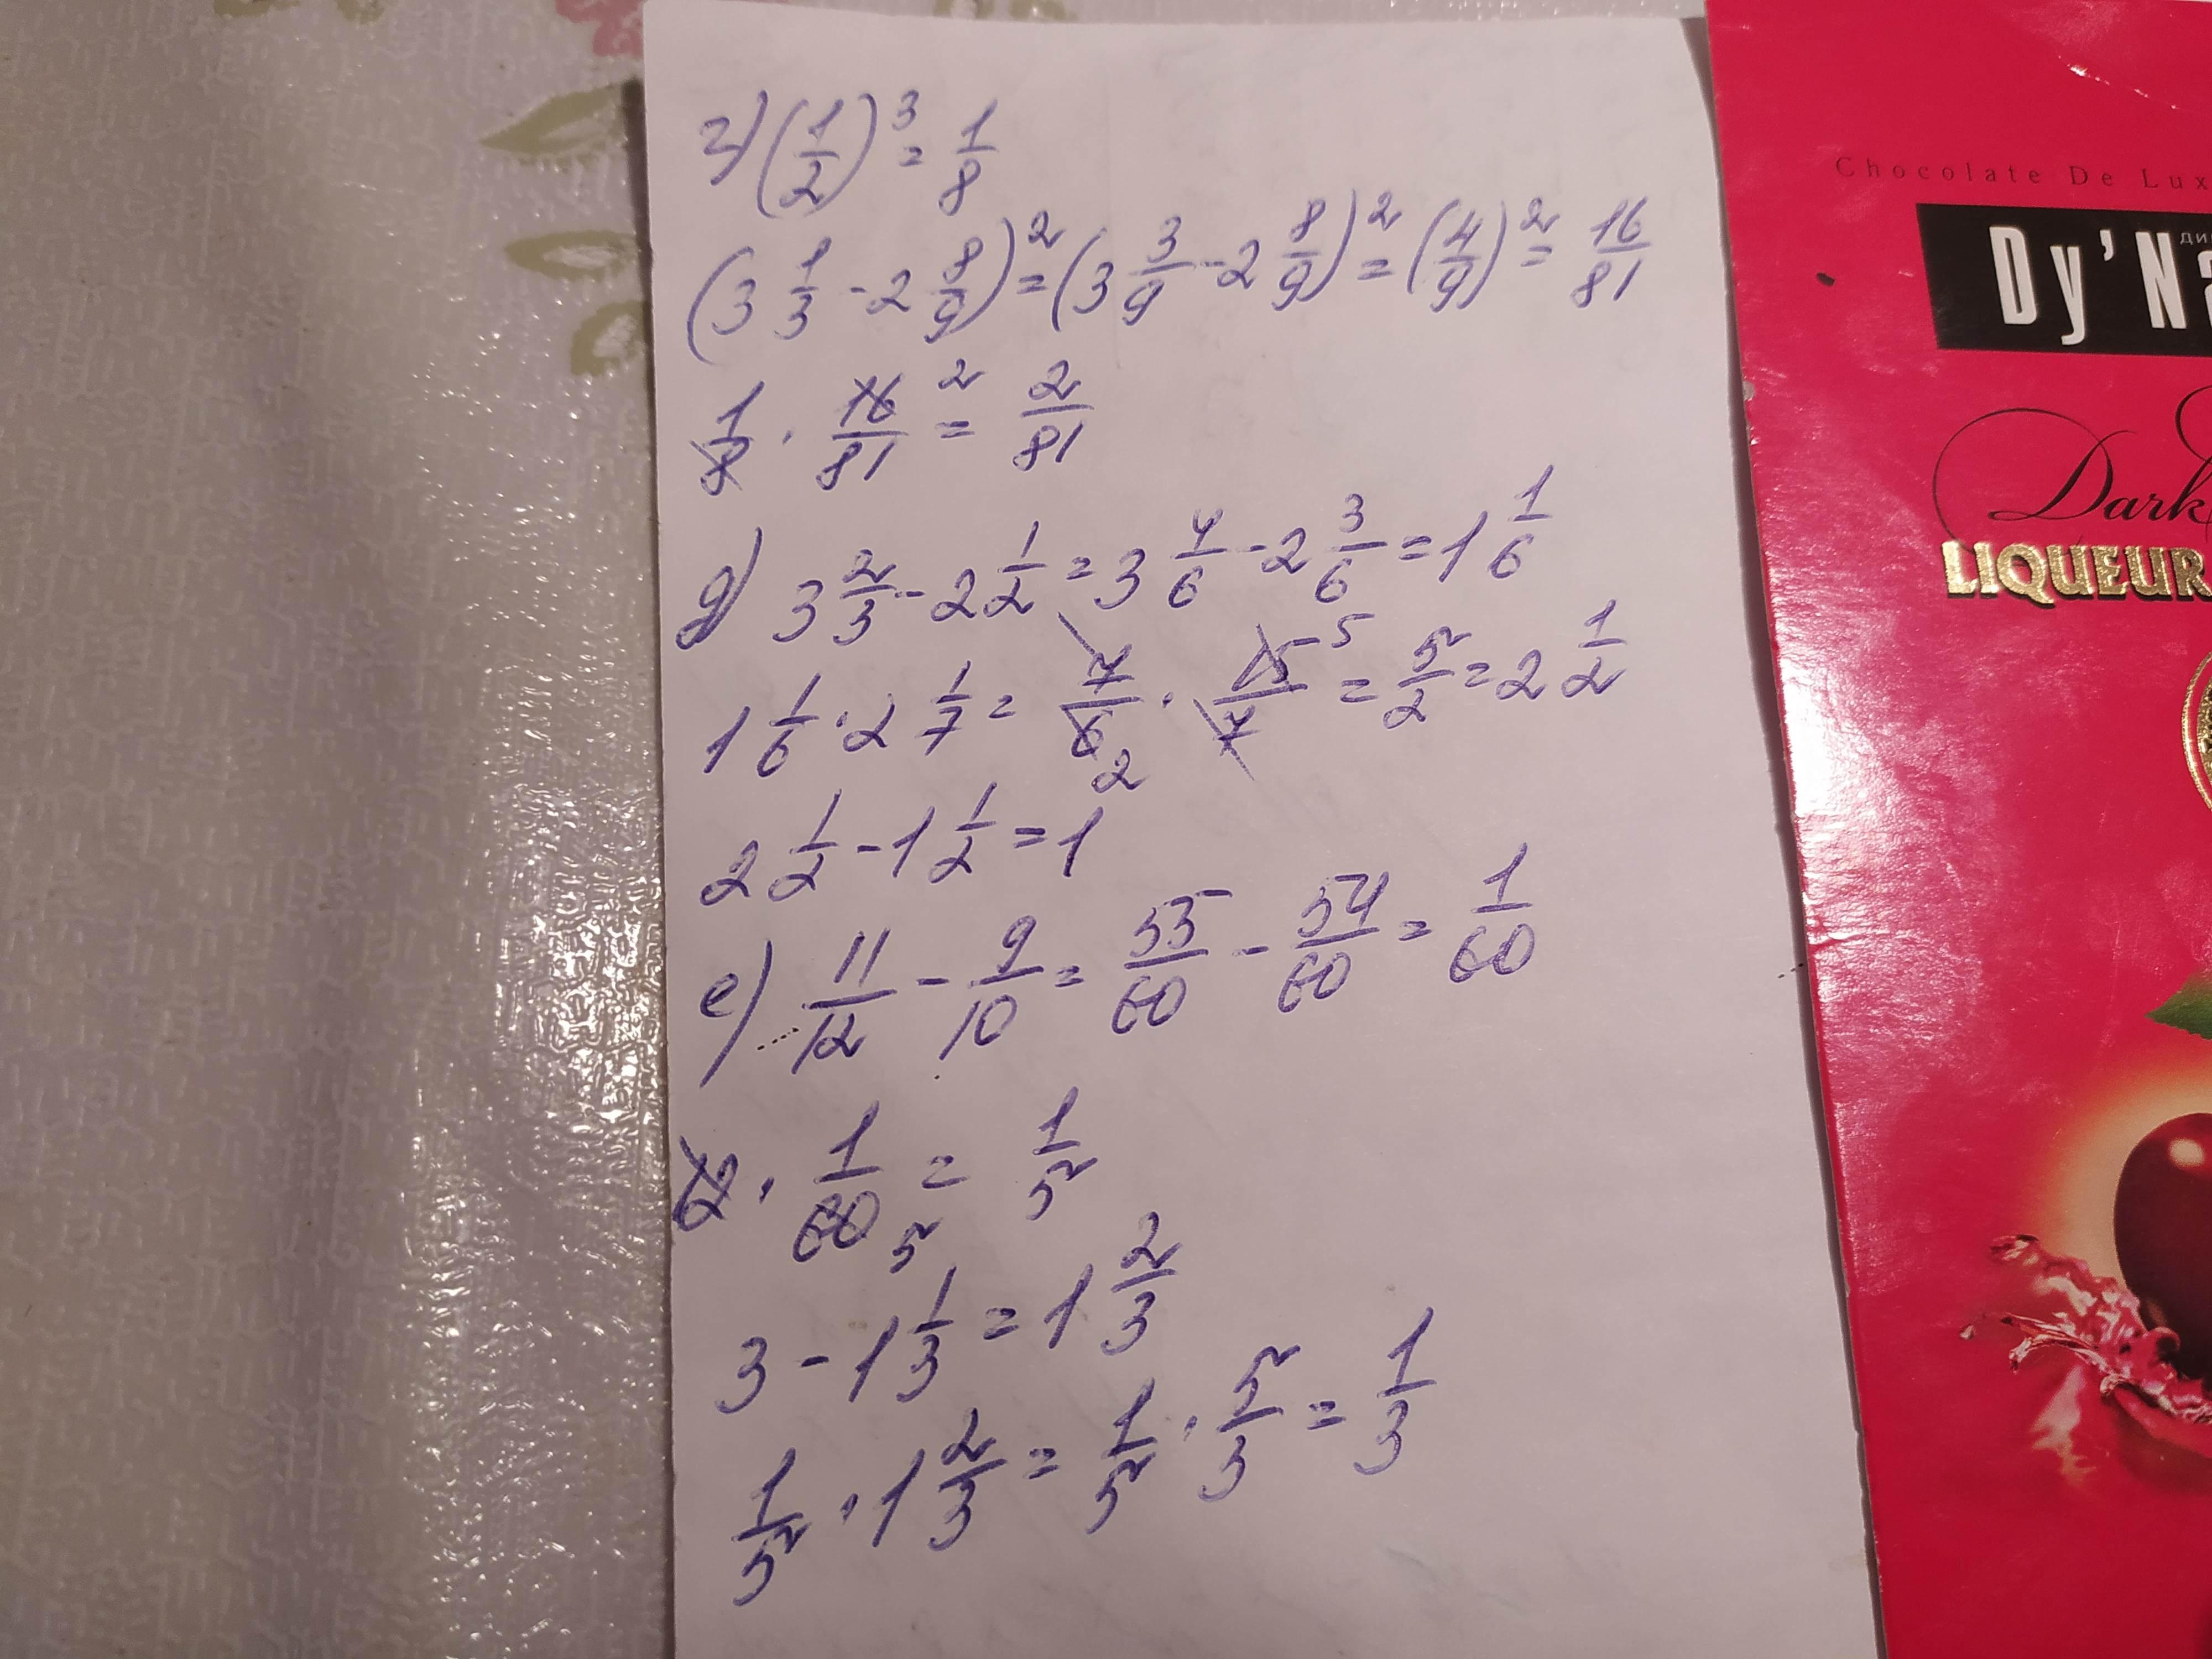 г) (1/2)^3 = 1/8
(3 1/3 - 2 8/9)^2 = (3 3/9 - 2 8/9)^2 = (4/9)^2 = 16/81
1/8 · 16/81 2 = 2/81
д) 3 2/3 - 2 1/2 = 3 4/6 - 2 3/6 = 1 1/6
1 1/6 · 2 1/7 = 7/6 2 · 15/7 5 = 5/2 = 2 1/2
2 1/2 - 1 1/2 = 1
е) 11/12 - 9/10 = 55/60 - 54/60 = 1/60
12 · 1/60 5 = 1/5
3 - 1 1/3 = 1 2/3
1/5 · 1 2/3 = 1/5 · 5/3 = 1/3
Chocolate De Lux
Dy'Na
Dark
LIQUEUR